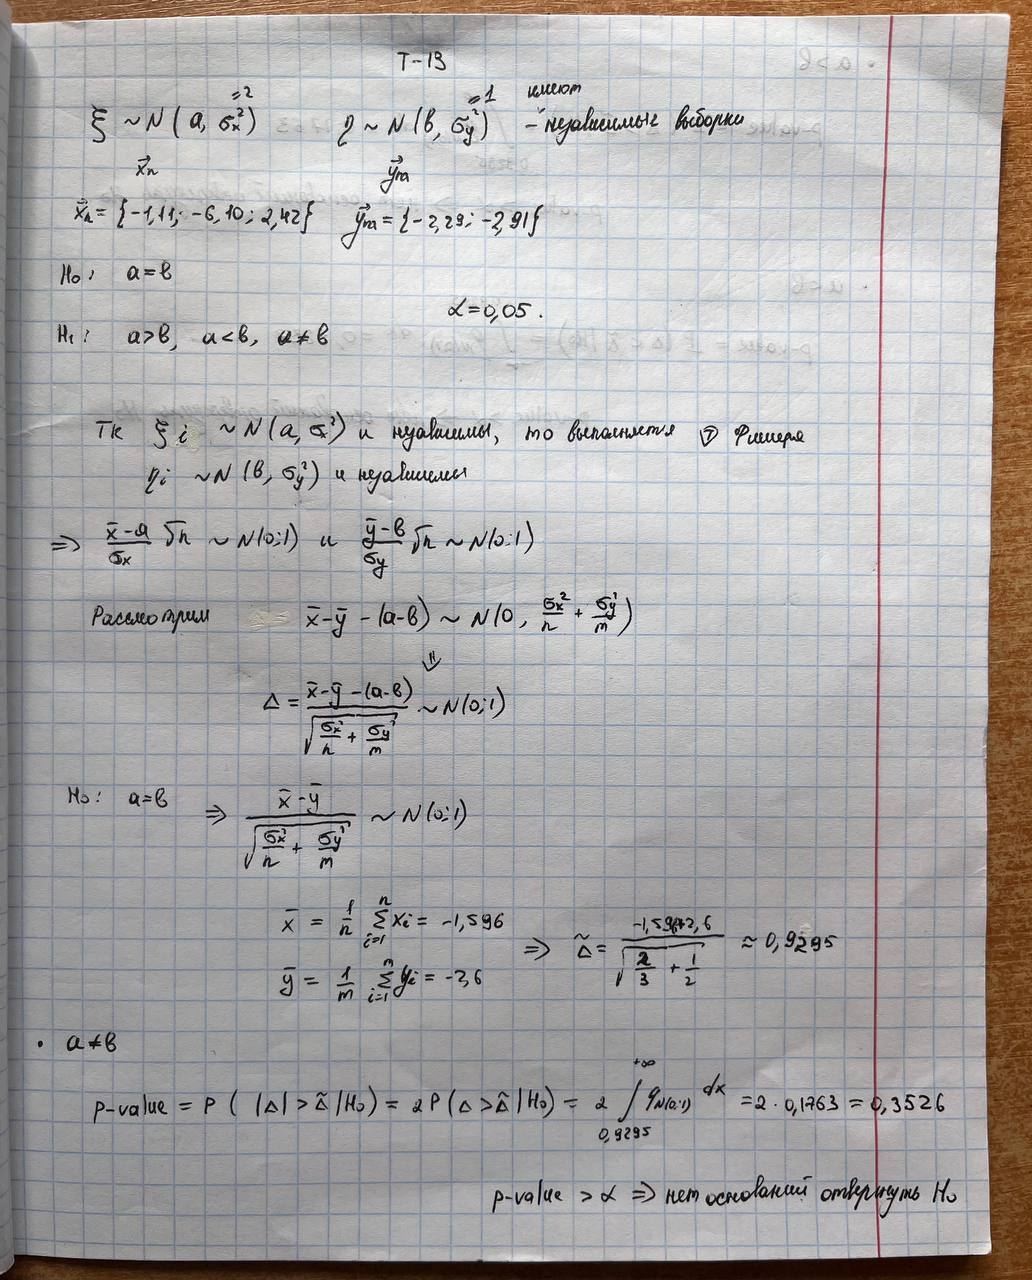 Т-13
=2 =1 имеют
ξ ~ N(a, σx²) η ~ N(b, σy²) – независимые выборки
x⃗n y⃗m
x⃗n = {-1,11; -6,10; 2,42} y⃗m = {-2,29; -2,91}
H₀: a = b
α = 0,05.
H₁: a > b, a < b, a ≠ b
Тк ξi ~ N(a, σx²) и независимы, то выполняется Ⓣ Фишера
ηi ~ N(b, σy²) и независимы
⇒ (x̄ - a)/σx √n ~ N(0;1) и (ȳ - b)/σy √n ~ N(0;1)
Рассмотрим x̄ - ȳ - (a-b) ~ N(0, σx²/n + σy²/m)
⇓
Δ = (x̄ - ȳ - (a-b))/√(σx²/n + σy²/m) ~ N(0;1)
H₀: a = b ⇒ (x̄ - ȳ)/√(σx²/n + σy²/m) ~ N(0;1)
x̄ = 1/n Σ_{i=1}^{n} xi = -1,596
⇒ Δ̃ = (-1,596+2,6)/√(2/3 + 1/2) ≈ 0,9295
ȳ = 1/m Σ_{i=1}^{m} yi = -2,6
• a ≠ b
p-value = P(|Δ| > Δ̃ | H₀) = 2P(Δ > Δ̃ | H₀) = 2 ∫_{0,9295}^{+∞} φ_{N(0;1)} dx = 2 · 0,1763 = 0,3526
p-value > α ⇒ нет оснований отвергнуть H₀